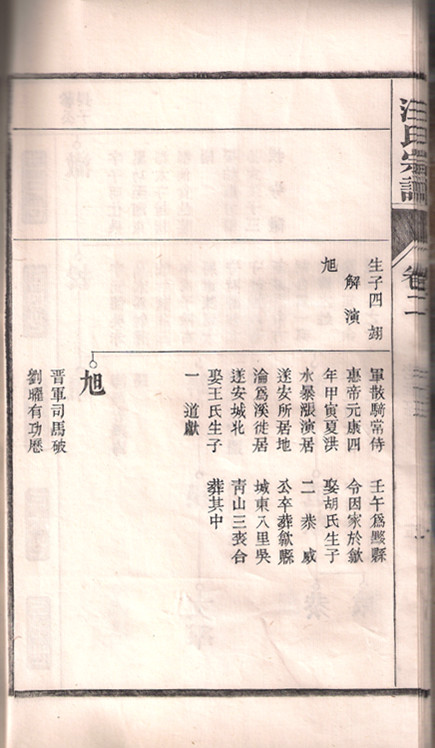 汪氏宗譜
卷二
生子四 翊
解 演
旭
軍散騎常侍
惠帝元康四
年甲寅夏洪
水暴漲演居
遂安所居地
淪爲溪徙居
遂安城北
娶王氏生子
一 道獻
壬午爲黟縣
令因家於歙
娶胡氏生子
二 恭 咸
公卒葬歙縣
城東八里吳
青山三喪合
葬其中
旭
晋軍司馬破
劉曜有功歷